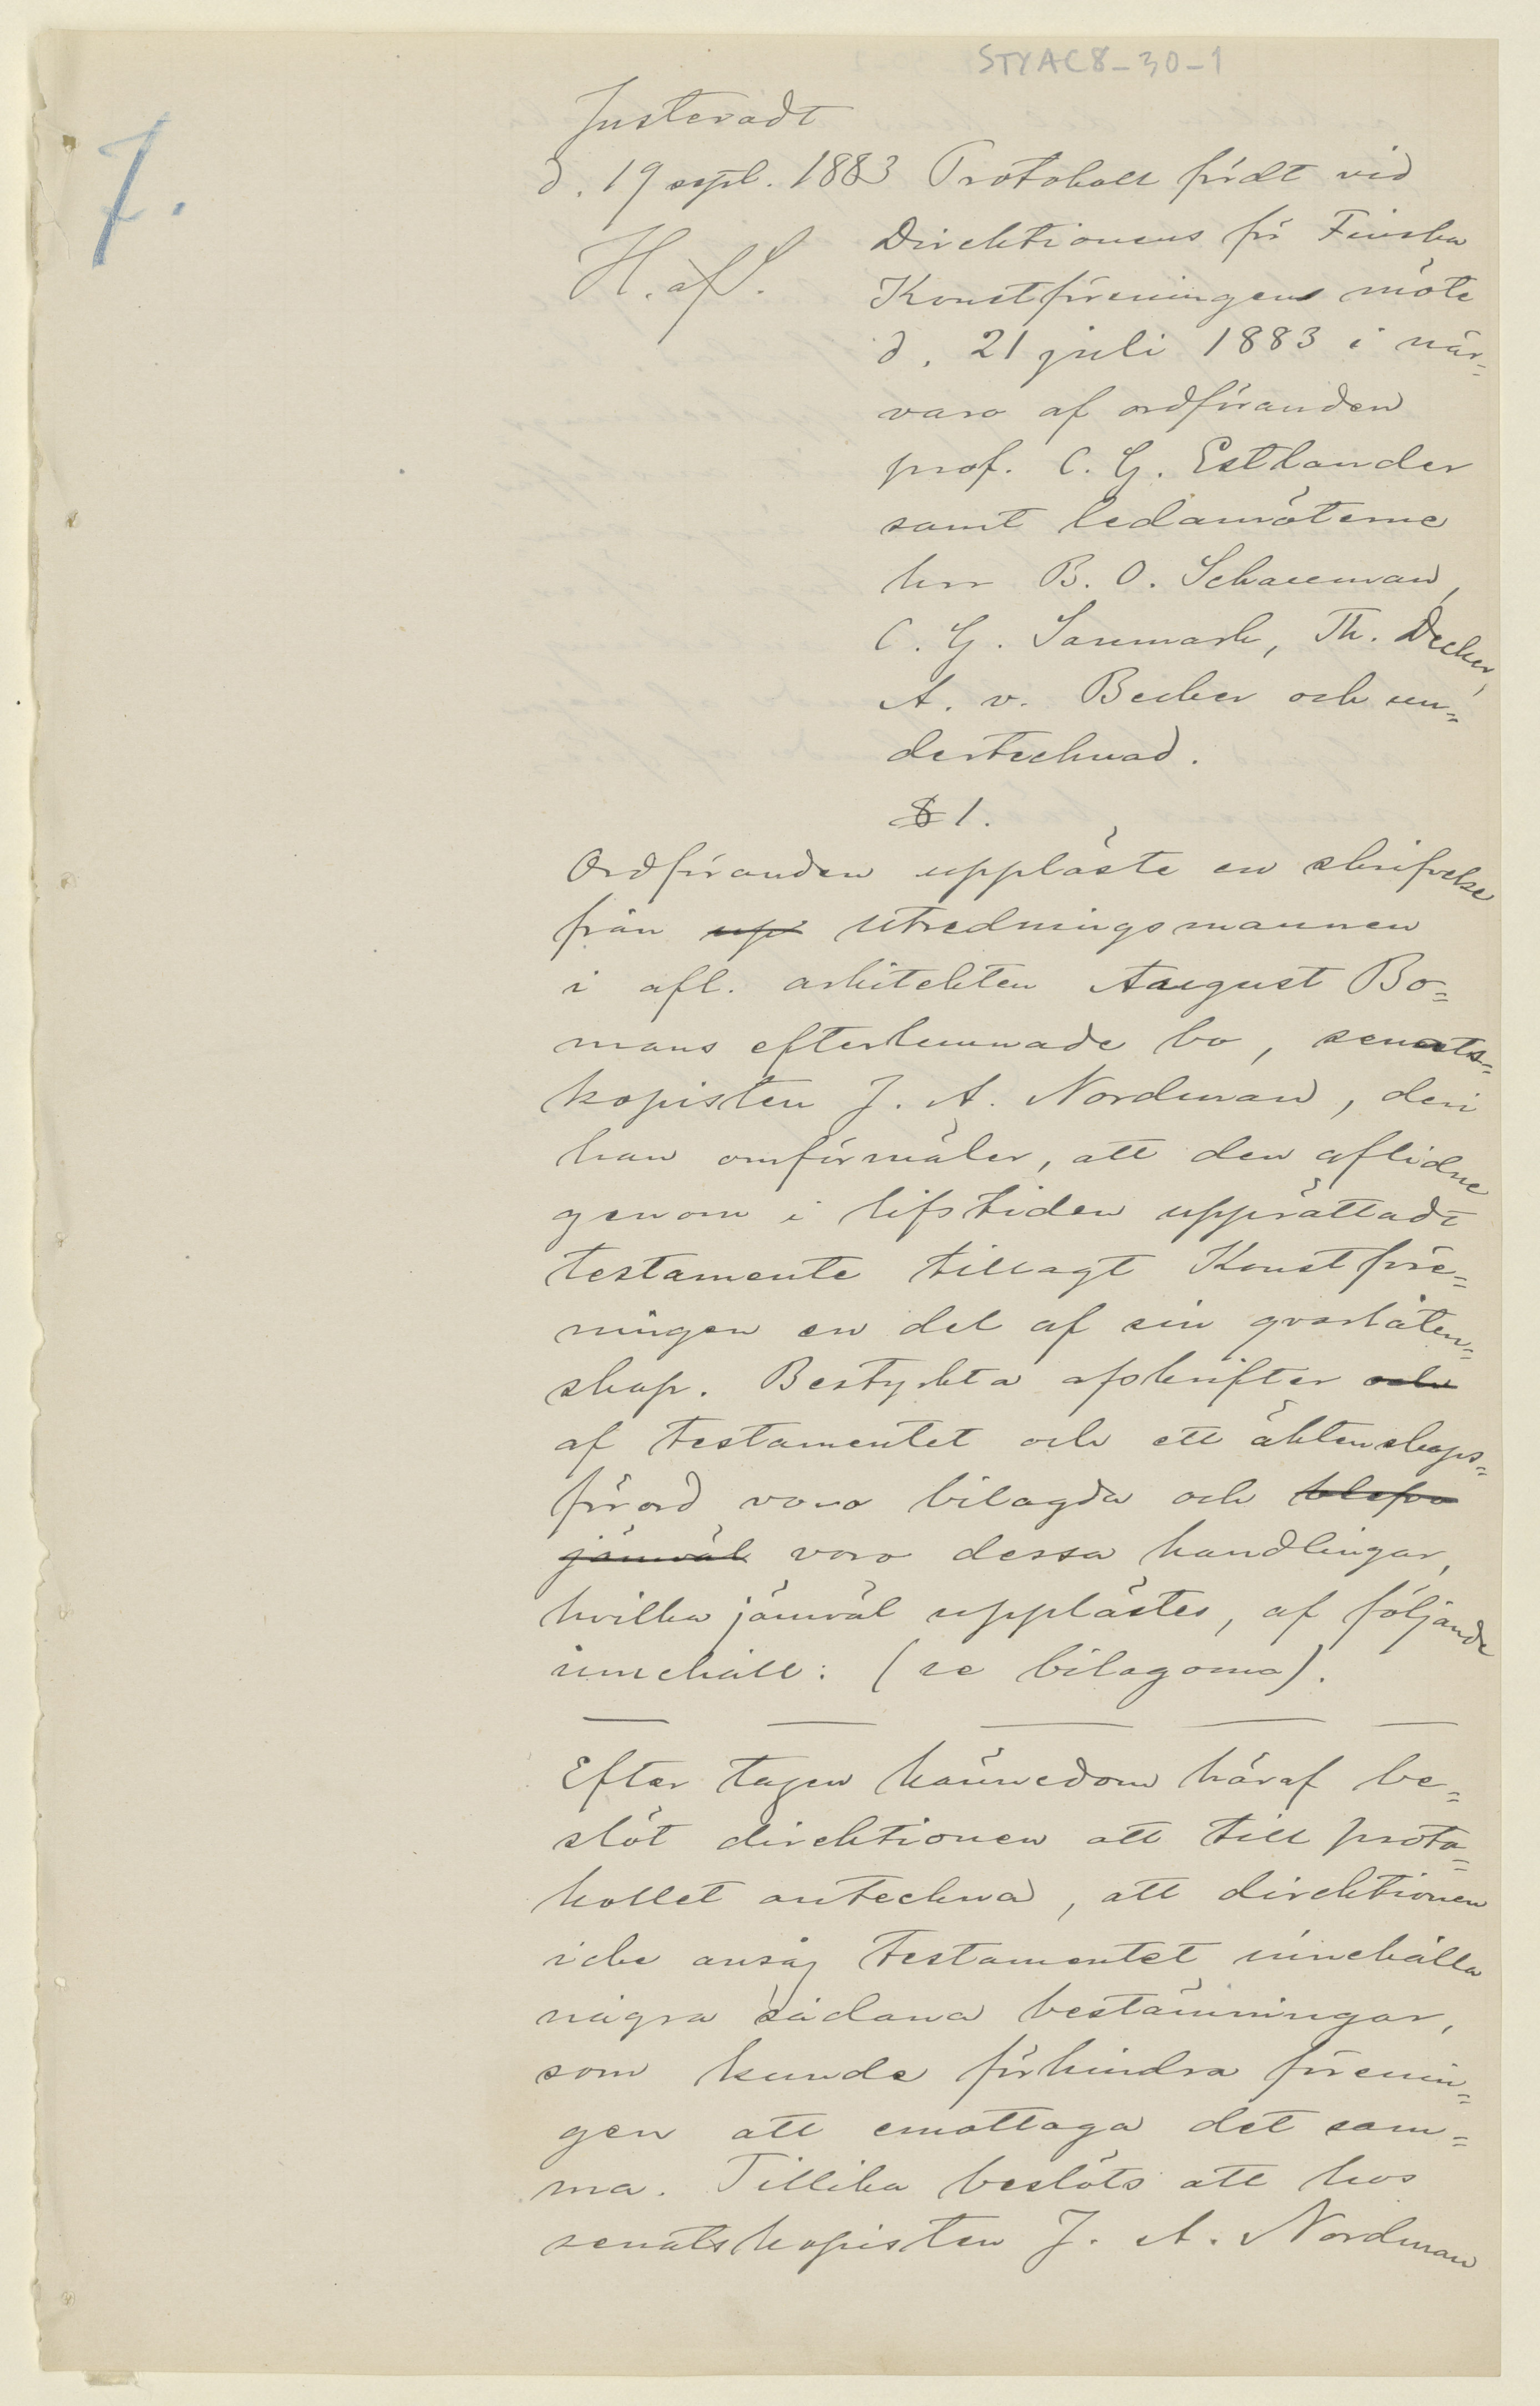 STYAC8-30-1
7.
Justeradt
d. 19 sept. 1883 Protokoll fördt vid
H. af S. Direktionens för Finska
Konstföreningens möte
d. 21 juli 1883 i när=
varo af ordföranden
prof. C. G. Estlander
samt ledamöterne
hrr B. O. Schauman,
C. G. Sanmark, Th. Decker,
A. v. Becker och un=
dertecknad.
§ 1.
Ordföranden uppläste en skrifvelse
från up utredningsmannen
i afl. arkitekten August Bo=
mans efterlemnade bo, senats=
kopisten J. A. Nordman, deri
han omförmäler, att den aflidne
genom i lifstiden upprättadt
testamente tillagt Konstföre=
ningen en del af sin qvarlåten=
skap. Bestyrkta afskrifter och
af testamentet och ett äktenskaps=
förord voro bilagda och blefvo
jämväl voro dessa handlingar,
hvilka jämväl upplästes, af följande
innehåll: (se bilagorna).
Efter tagen kännedom häraf be=
slöt direktionen att till proto=
kollet anteckna, att direktionen
icke ansåg testamentet innehålla
några sådana bestämningar,
som kunde förhindra förenin=
gen att emottaga det sam=
ma. Tillika beslöts att hos
senatskopisten J. A. Nordman